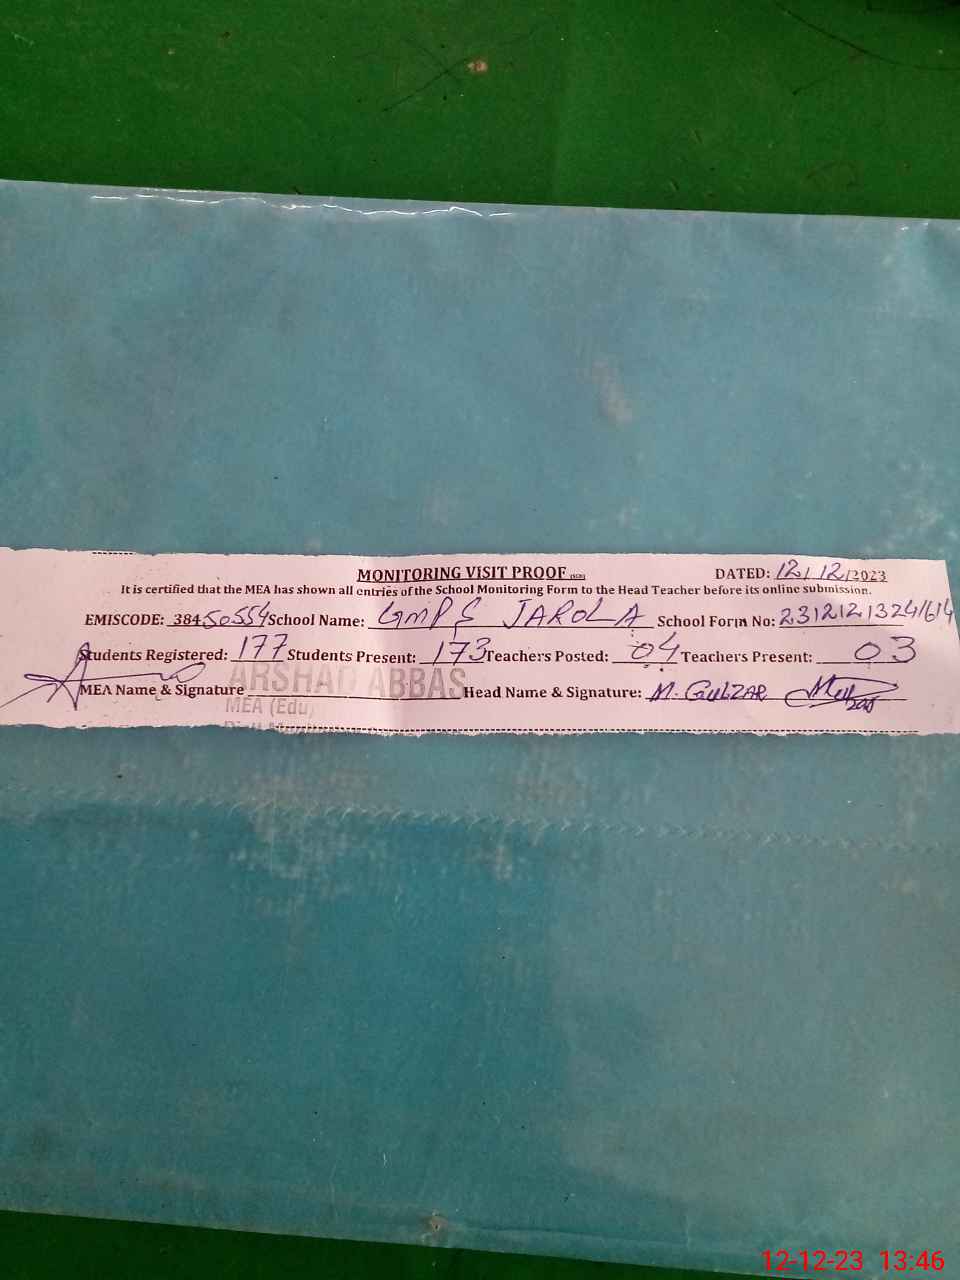 MONITORING VISIT PROOF DATED: 12/12/2023
It is certified that the MEA has shown all entries of the School Monitoring Form to the Head Teacher before its online submission.
EMISCODE: 38450554 School Name: GMPS JAROLA School Form No:
Students Registered: 177 Students Present: 173 Teachers Posted: 04 Teachers Present: 03
MEA Name & Signature ARSHAD ABBAS Head Name & Signature: M. GULZAR
MEA (Edu)
12-12-23 13:46